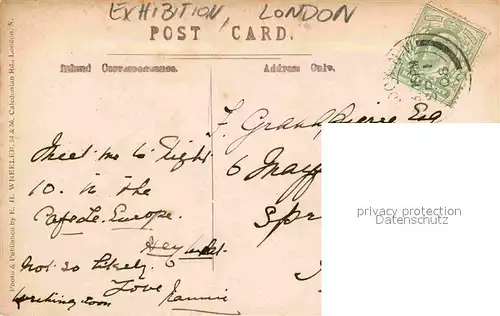 EXHIBITION, LONDON
POST CARD.
Inland Correspondence.
Address Only.
Photo & Published by E. H. WHEELER, M & M, Caledonian Rd., London, N.
Meet me to Night
10. in the
Cafe de Europe.
Hey what
Not so likely.
Love
writing soon
F. Grand Esq
6 May
Spr
privacy protection
Datenschutz